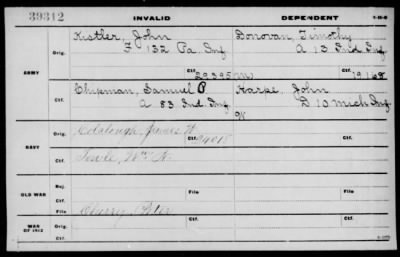 39312 INVALID DEPENDENT
Kistler, John Donovan, Timothy
Orig. F 132 Pa. Inf. A 13 Ind. Inf.
ARMY Ctf. 29395 Ctf. 19168
Chipman, Samuel P Harpe, John
Ctf. A 83 Ind. Inf. D 10 Mich Inf
W
Colclough, James H.
Orig. Ctf. Ctf.
NAVY
Towle, Wm A.
Ctf.
Rej. File File
OLD WAR
Ctf.
File Cherry, Peter
Orig. Ctf. Ctf.
WAR OF 1812
Ctf.